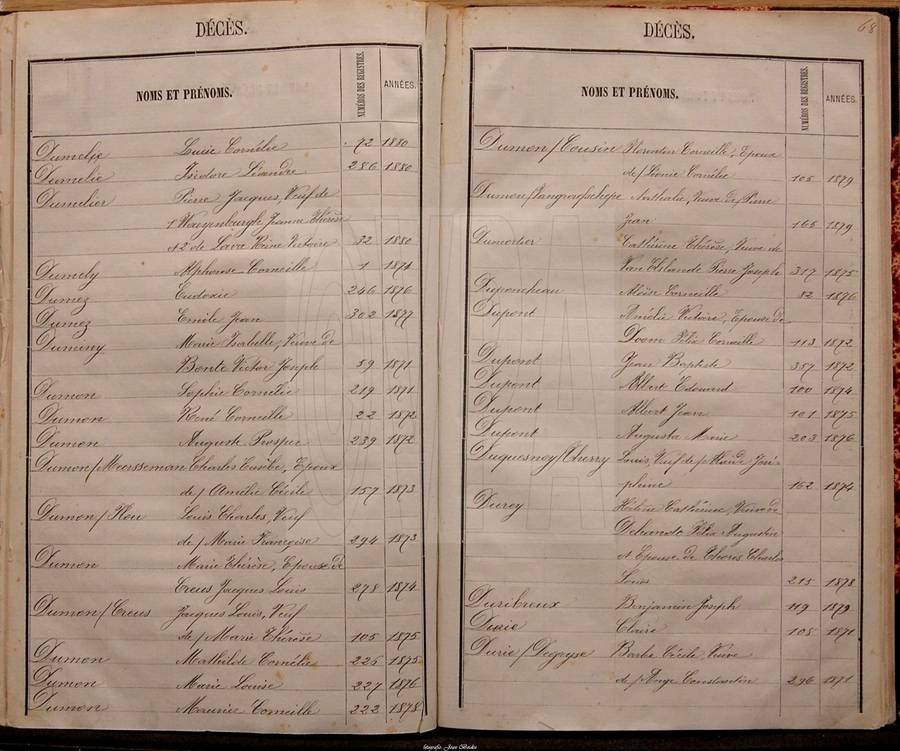 DÉCÈS.
NOMS ET PRÉNOMS. NUMÉROS DES REGISTRES. ANNÉES.
Dumelie Luise Cornélie 72 1880
Dumelie Isidore Léandre 286 1880
Dumelier Pierre Jacques, Veuf de
1 Waeyenburgh Jeanne Thérèse
& 2 de Lava Rose Victoire 32 1880
Dumely Alphonse Corneille 1 1871
Dumez Eudoxie 246 1876
Dumez Emile Jean 302 1877
Duminy Marie Isabelle, Veuve de
Bonte Victor Joseph 59 1871
Dumon Sophie Cornélie 219 1871
Dumon René Corneille 22 1872
Dumon Auguste Prosper 239 1872
Dumon/Meersseman Charles Eusèbe, Epoux
de / Amélie Cécile 157 1873
Dumon / Neu Louis Charles, Veuf
de / Marie Françoise 294 1873
Dumon Marie Thérèse, Epouse de
Creus Jacques Louis 278 1874
Dumon / Creus Jacques Louis, Veuf
de / Marie Thérèse 105 1875
Dumon Mathilde Cornélie 225 1875
Dumon Marie Louise 227 1876
Dumon Maurice Corneille 222 1878
DÉCÈS. 68
NOMS ET PRÉNOMS. NUMÉROS DES REGISTRES. ANNÉES.
Dumon / Cousin Florentin Corneille, Epoux
de / Léonie Cornélie 105 1879
Dumon/Langraefschepe Nathalie, Veuve de Pierre
Jean 165 1879
Dumortier Cathérine Thérèse, Veuve de
Van Elslande Pierre Joseph 317 1875
Duponcheau Aloïse Corneille 82 1876
Dupont Amélie Victoire, Epouse de
Doom Félix Corneille 113 1872
Dupont Jean Baptiste 357 1872
Dupont Albert Édouard 100 1874
Dupont Albert Jean 101 1875
Dupont Augusta Marie 203 1876
Duquesnoy / Cherry Louis, Veuf de / Maude José-
phine 162 1874
Durey Hélène Cathérine, Veuve de
Dehandt Félix Augustin
& Epouse de Thores Charles
Louis 215 1878
Duribreux Benjamin Joseph 119 1879
Durie Claire 105 1871
Durie / Degryse Barbe Cécile, Veuve
de / Ange Constantin 296 1871
fotografie Jean Beele